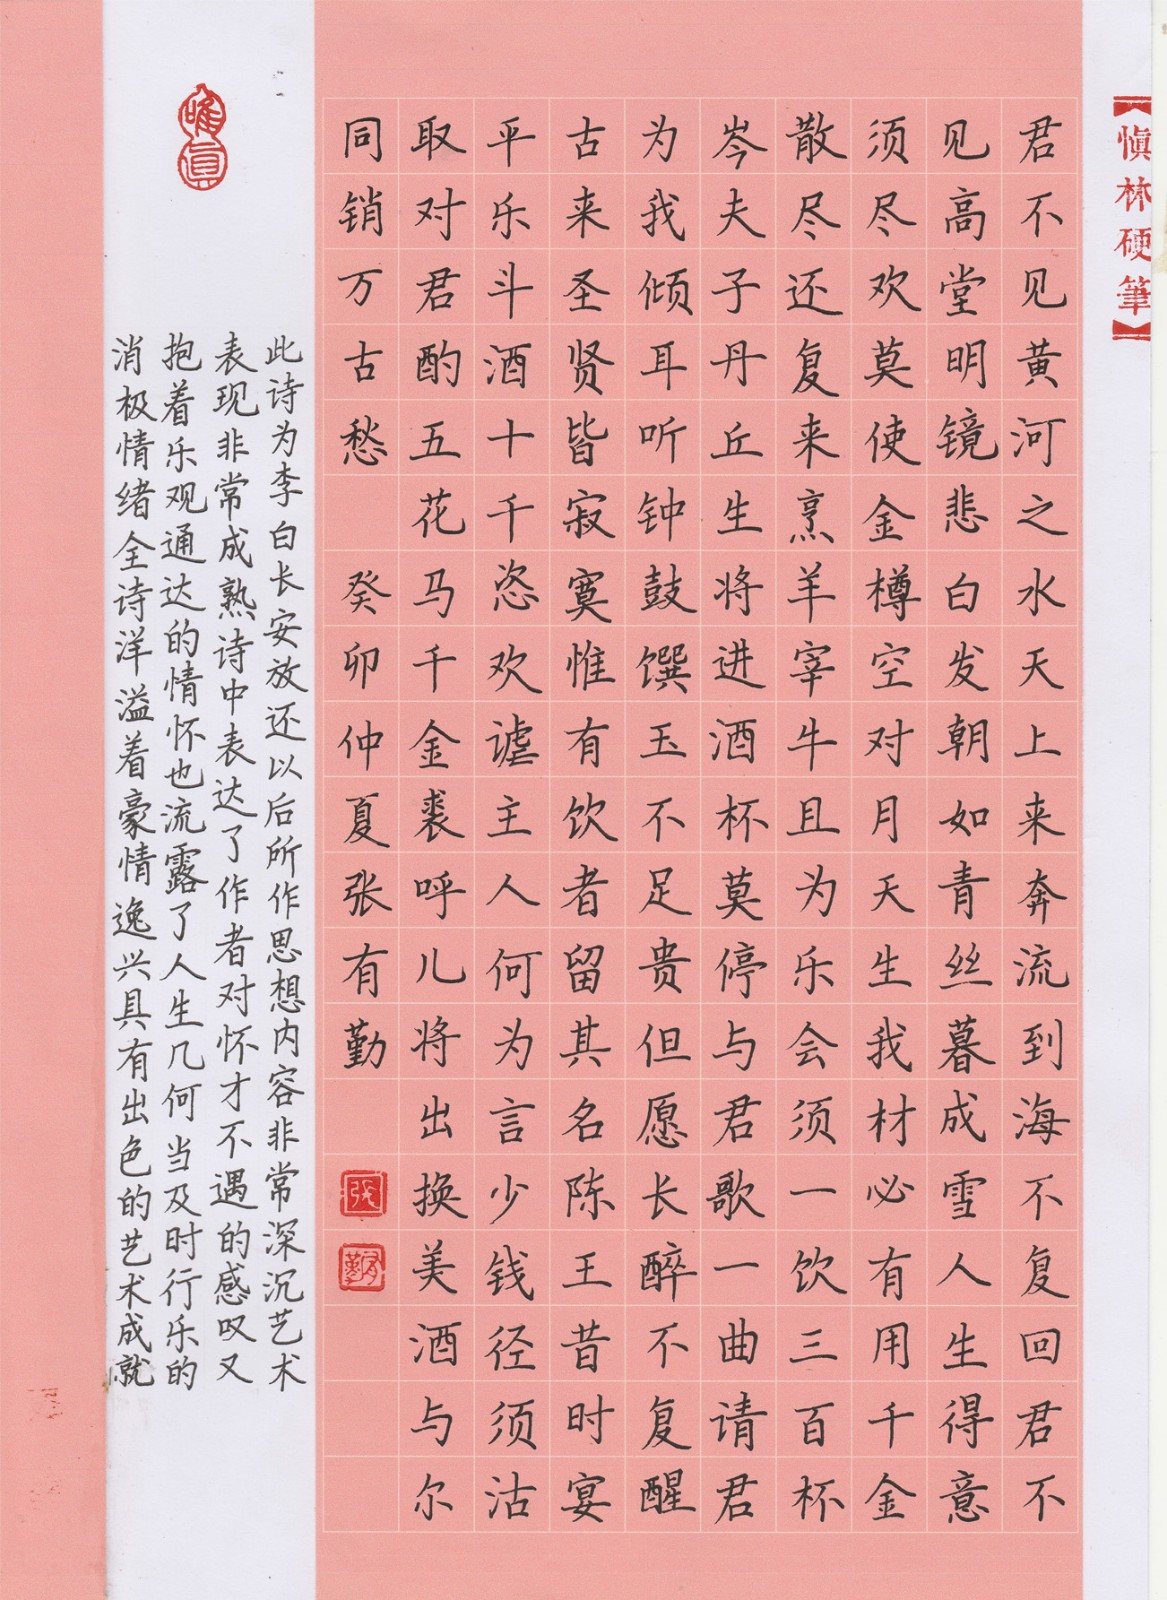 【慎林硬筆】
君不见黄河之水天上来奔流到海不复回君不
见高堂明镜悲白发朝如青丝暮成雪人生得意
须尽欢莫使金樽空对月天生我材必有用千金
散尽还复来烹羊宰牛且为乐会须一饮三百杯
岑夫子丹丘生将进酒杯莫停与君歌一曲请君
为我倾耳听钟鼓馔玉不足贵但愿长醉不复醒
古来圣贤皆寂寞惟有饮者留其名陈王昔时宴
平乐斗酒十千恣欢谑主人何为言少钱径须沽
取对君酌五花马千金裘呼儿将出换美酒与尔
同销万古愁 癸卯仲夏张有勤
张
有勤
唯真
此诗为李白长安放还以后所作思想内容非常深沉艺术
表现非常成熟诗中表达了作者对怀才不遇的感叹又
抱着乐观通达的情怀也流露了人生几何当及时行乐的
消极情绪全诗洋溢着豪情逸兴具有出色的艺术成就